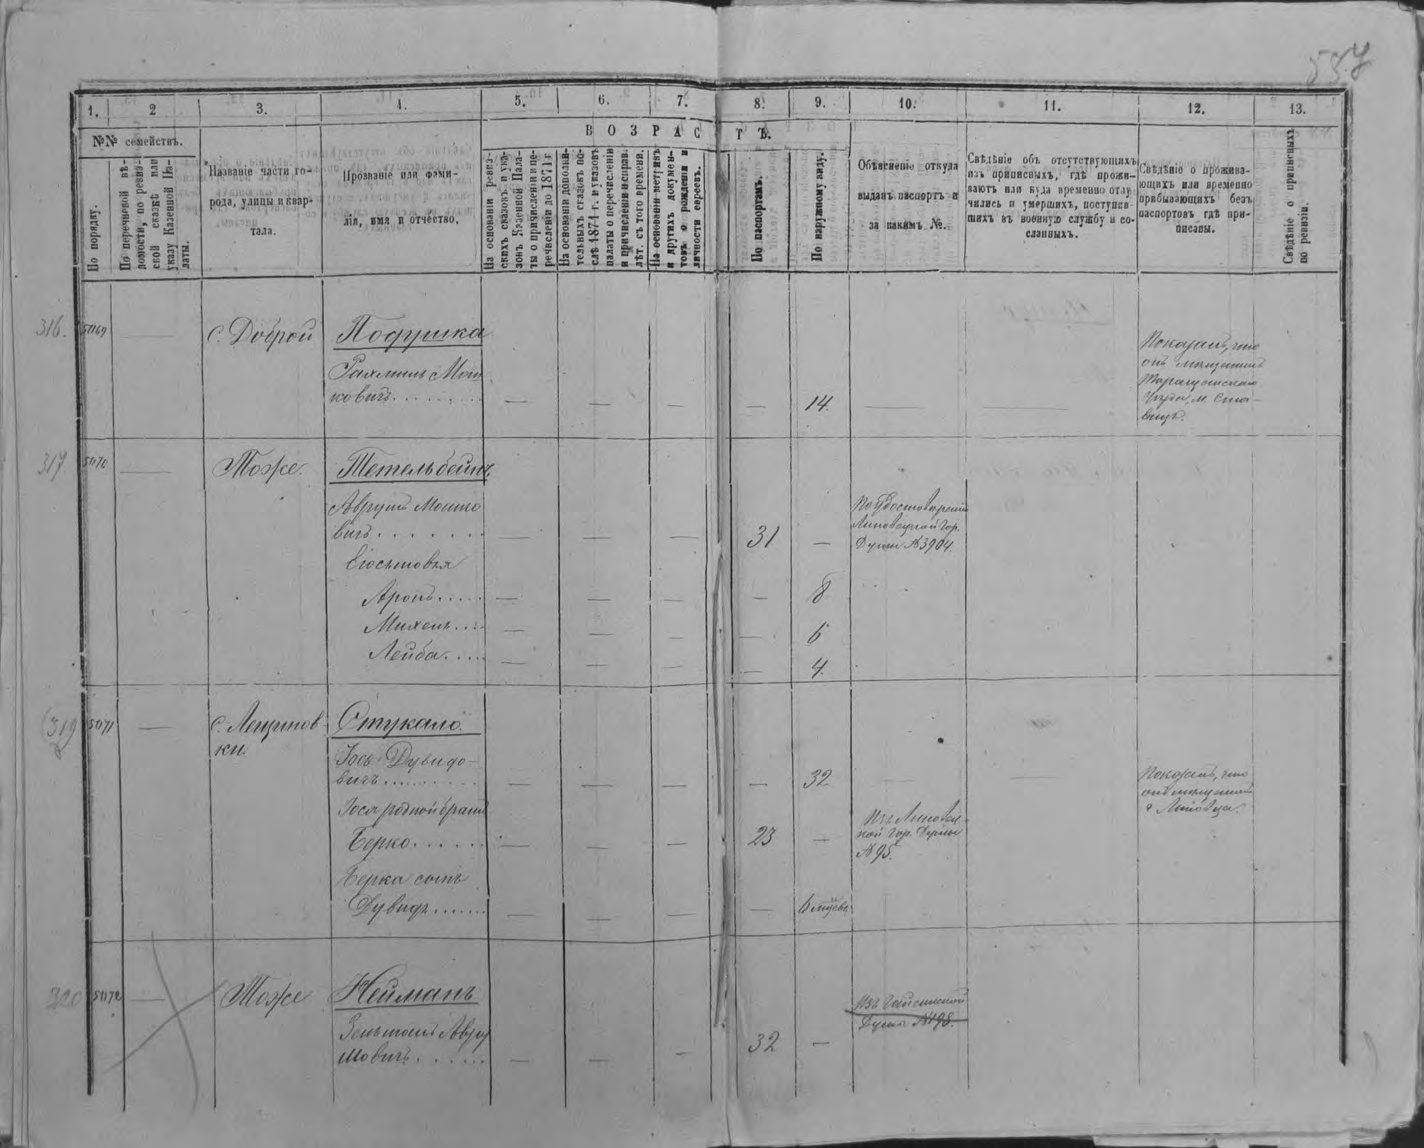 557
1. 2 3. 4. 5. 6. 7. 8. 9. 10. 11. 12. 13.
№№ семействъ.
По порядку.
По перечневой вѣ-
домости, по ревиз-
ской сказкѣ или
указу Казенной Па-
латы.
Названіе части го-
рода, улицы и квар-
тала.
Прозваніе или фами-
лія, имя и отчество.
ВОЗРАСТЪ.
На основаніи реви-
скихъ сказокъ и ука-
зовъ Казенной Пала-
ты о причисленіи и пе-
речисленіи до 1874 г.
На основаніи дополни-
тельныхъ сказокъ по-
слѣ 1874 г. и указовъ
палаты о перечисленіи
и причисленіи исправ.
лѣт. съ того времени.
На основаніи метрикъ
и другихъ докумен-
товъ о рожденіи и
личности евреевъ.
По паспортамъ.
По наружному виду.
Объясненіе откуда
выданъ паспортъ и
за какимъ №.
Свѣдѣніе объ отсутствующихъ
изъ приписныхъ, гдѣ прожи-
ваютъ или куда временно отлу-
чились и умершихъ, поступив-
шихъ въ военную службу и со-
сланныхъ.
Свѣдѣніе о прожива-
ющихъ или временно
прибывающихъ безъ
паспортовъ гдѣ при-
писаны.
Свѣдѣніе о приписныхъ
по ревизіи.
316. 51169 — с. Доброй Подушка
Рахмиль Мош
ковичъ — — — — 14. — —
Показалъ, что
онъ мѣщанинъ
Таращанскаго
уѣзда, м. Ста-
вищъ.
317. 51170 — Тоже Тетельбеймъ
Аврумъ Мошко
вичъ — — — 31 —
По удостоверенію
Липовецкой гор.
Думы №3904.
Сыновья
Аронъ — — — — 8
Михель — — — — 6
Лейба — — — — 4.
319 51171 — с. Лещинов
ки. Стукало.
Іось Дувидо-
вичъ — — — — 32 — —
Показалъ, что
онъ мѣщанинъ
г. Липовца.
Іося родной братъ
Берко — — — 23 —
Изъ Липовец-
кой гор. Думы
№95.
Берка сынъ
Дувидъ — — — — 6 мѣсяц.
320 51172 — Тоже Нейманъ
Авру
мовичъ — — — 32 —
Изъ Гайсинской
Думы №198.